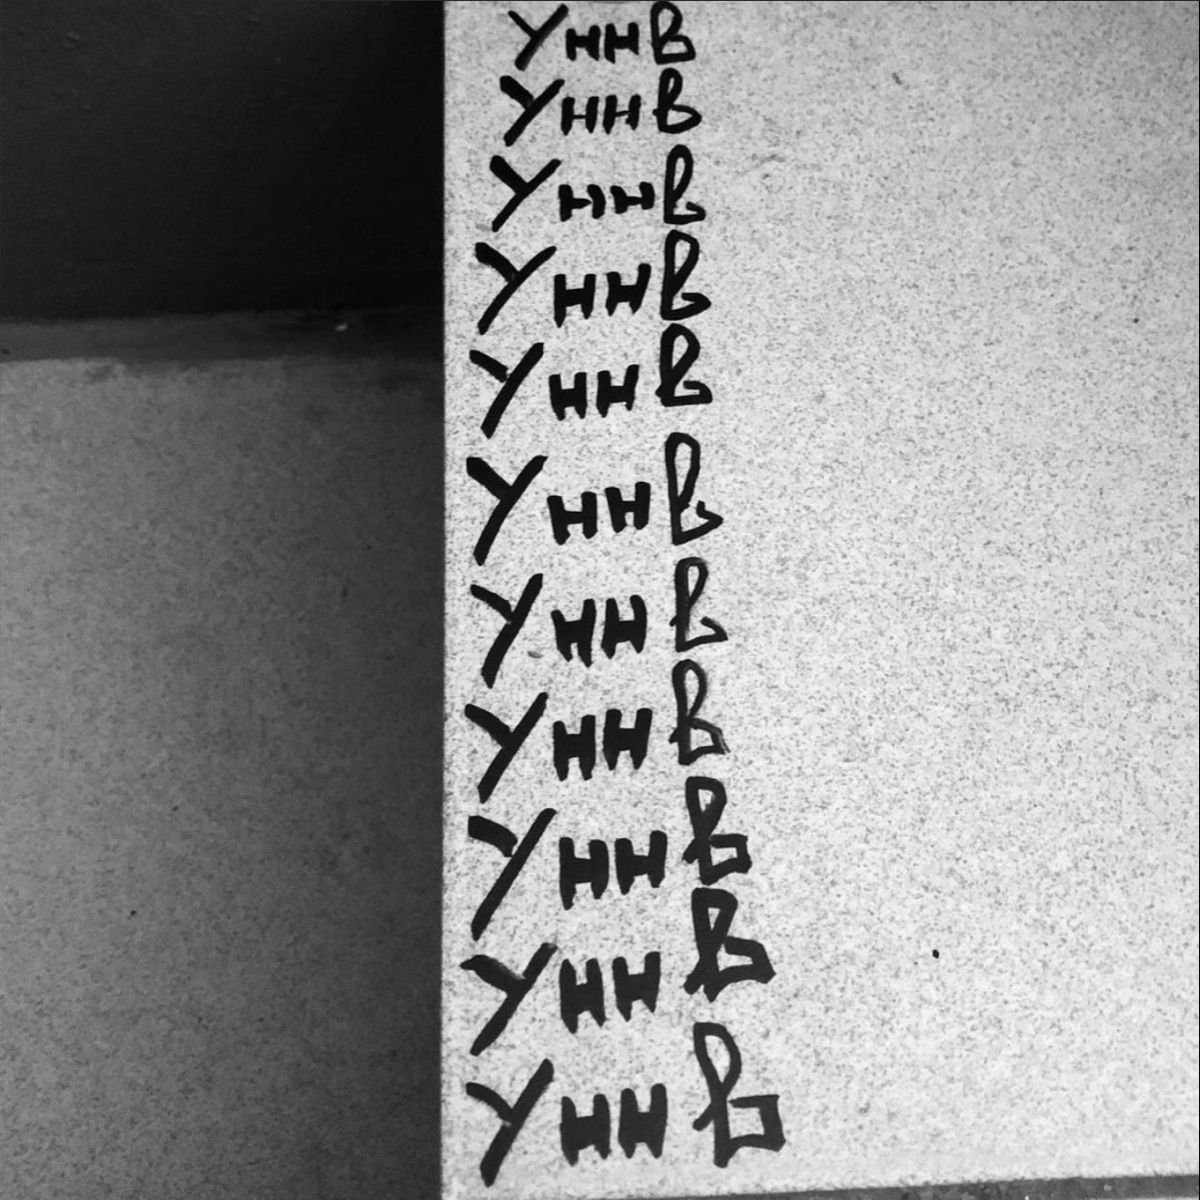 Уннв
Уннв
Уннв
Уннв
Уннв
Уннв
Уннв
Уннв
Уннв
Уннв
Уннв